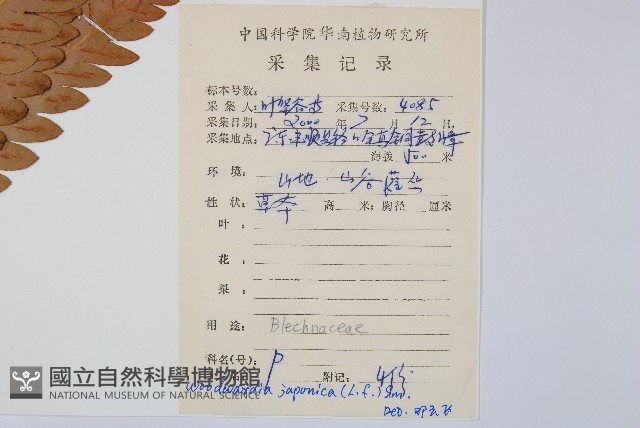 中国科学院华南植物研究所
采集记录
标本号数:
采集人: 叶华谷 采集号数: 4085
采集日期: 2000 年 7 月 12 日
采集地点: 广东丰顺县
海拔 500 米
环境: 山地 山谷
性状: 草本 高 米; 胸径 厘米
叶:
花:
果:
用途: Blechnaceae
科名(号): P
附记: 4份
Woodwardia japonica (L.f.) Sm.
Det.
國立自然科學博物館
NATIONAL MUSEUM OF NATURAL SCIENCE